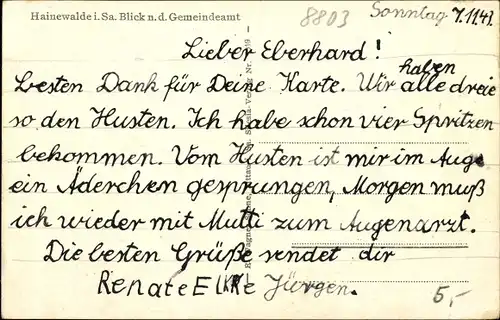 Hainewalde i. Sa. Blick n. d. Gemeindeamt
8803
Sonntag 7.12.47.
Lieber Eberhard!
besten Dank für Deine Karte. Wir haben alle dreie
so den Husten. Ich habe schon vier Spritzen
bekommen. Vom Husten ist mir im Auge
ein Äderchen gesprungen, Morgen muß
ich wieder mit Mutti zum Augenarzt.
Die besten Grüße sendet dir
Renate Elke Jürgen.
5,-